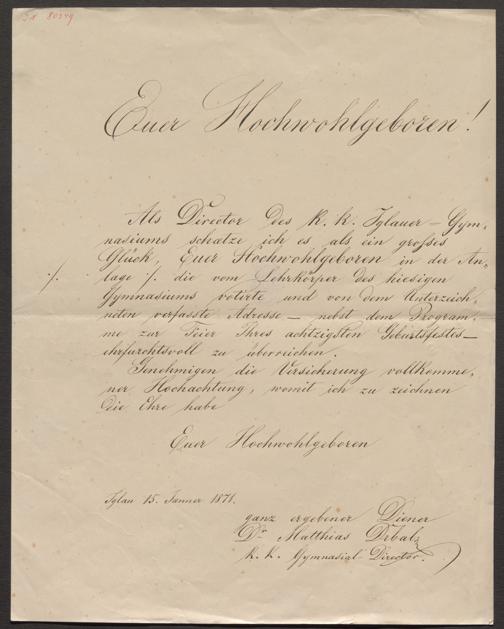 Euer Hochwohlgeboren!
Als Director des k. k. Iglauer-Gym-
nasiums schatze ich es als ein großes
Glück, Euer Hochwohlgeboren in der An-
·/. lage ·/. die vom Lehrkörper des hiesigen
Gymnasiums votirte und von dem Unterzeich-
neten verfasste Adresse — nebst dem Program-
me zur Feier Ihres achtzigsten Geburtsfestes —
ehrfurchtsvoll zu überreichen.
Genehmigen die Versicherung vollkomme-
ner Hochachtung, womit ich zu zeichnen
die Ehre habe
Euer Hochwohlgeboren
Iglau 15. Jänner 1871.
ganz ergebener Diener
Dr Matthias Drbal
k. k. Gymnasial-Director.